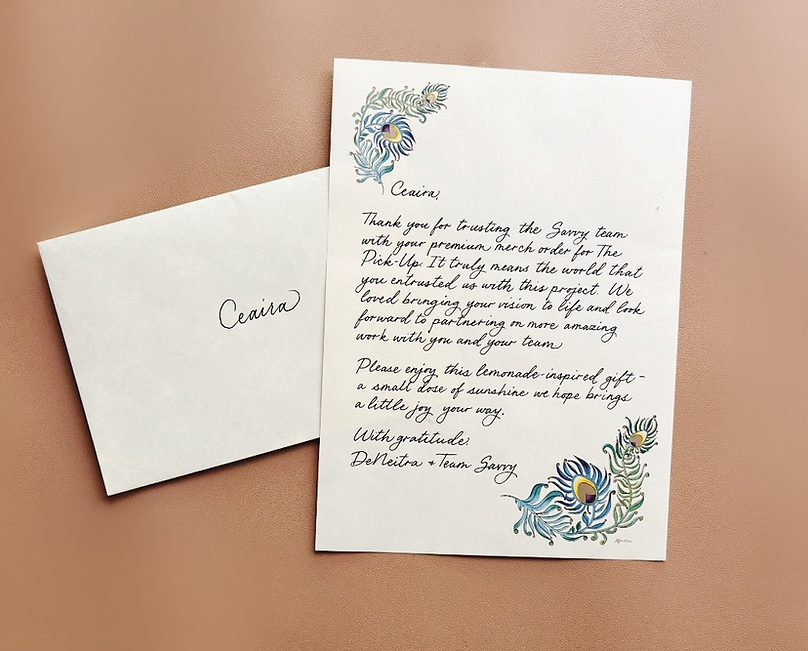 Ceaira
Ceaira,
Thank you for trusting the Savvy team
with your premium merch order for The
Pick-Up. It truly means the world that
you entrusted us with this project. We
loved bringing your vision to life and look
forward to partnering on more amazing
work with you and your team
Please enjoy this lemonade-inspired gift -
a small dose of sunshine we hope brings
a little joy your way.
With gratitude,
DeNeitra + Team Savvy